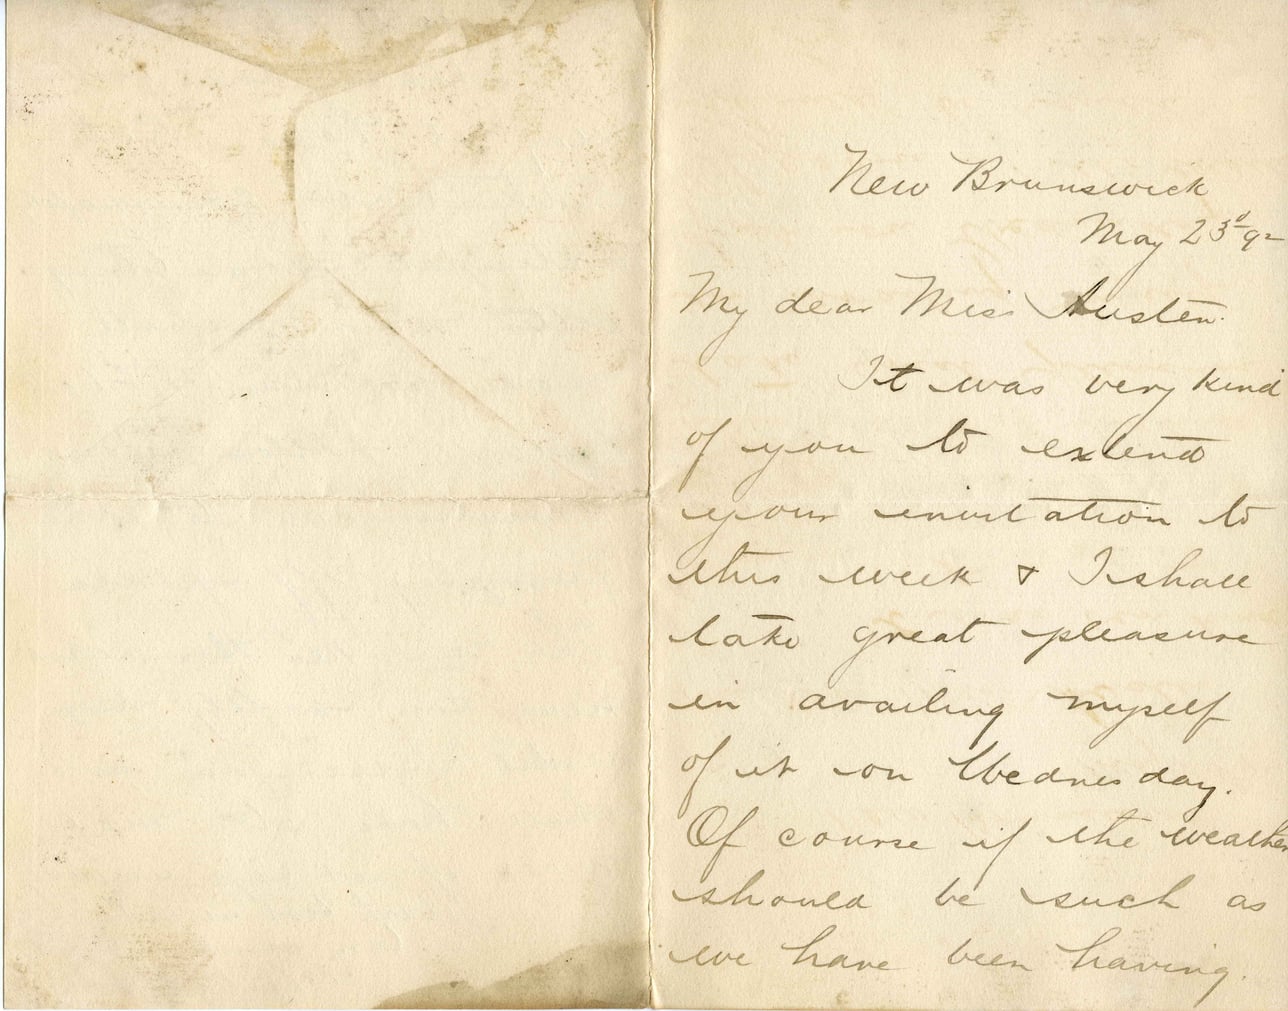 New Brunswick
May 23d 92
My dear Miss Austen.
It was very kind
of you to extend
your invitation to
this week & I shall
take great pleasure
in availing myself
of it on Wednesday.
Of course if the weather
should be such as
we have been having.